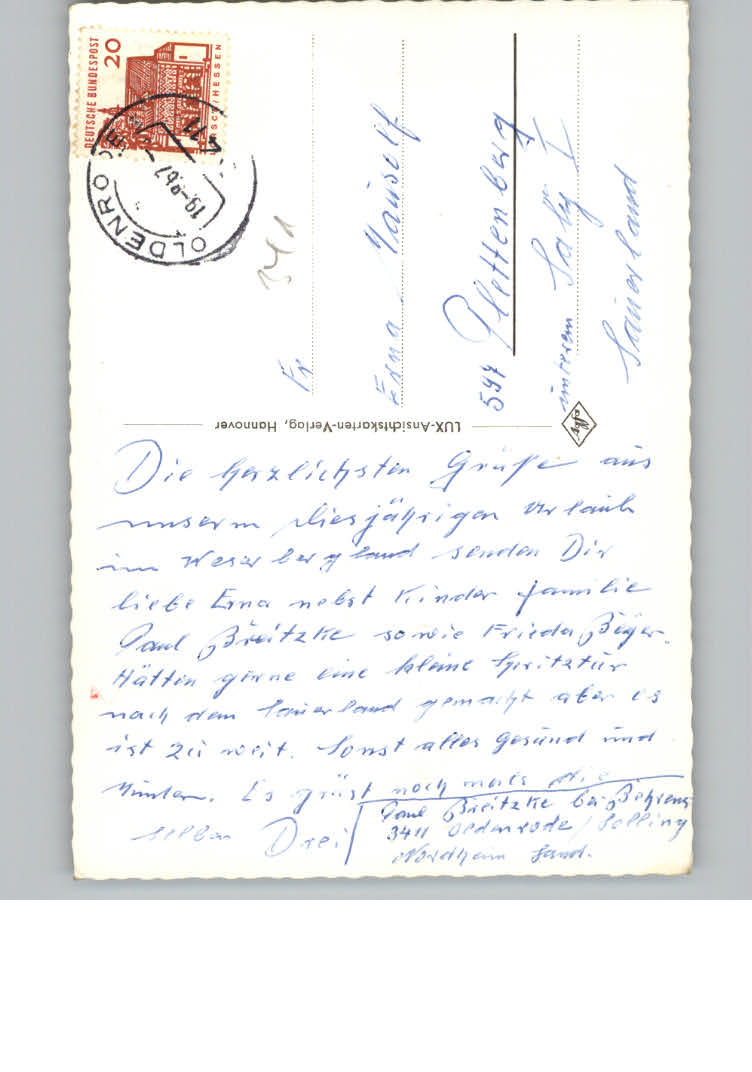 Die herzlichsten Grüße aus
unserm diesjährigen Urlaub
im Weserbergland senden Dir
liebe Erna nebst Kinder Familie
Paul Breitzke sowie Frieda Beyer.
Hätten gerne eine kleine Spritztur
nach dem Sauerland gemacht aber es
ist zu weit. Sonst alles gesund und
Munter. Es grüst noch mals die
selben Drei
Paul Breitzke bei Behrens
3411 Oldenrode / Solling
Nordheim Land.
LUX-Ansichtskarten-Verlag, Hannover
Fr
Erna
597 Plettenberg
unterem Saley I
Sauerland
DEUTSCHE BUNDESPOST
20
LORSCH/HESSEN
OLDENRODE
341